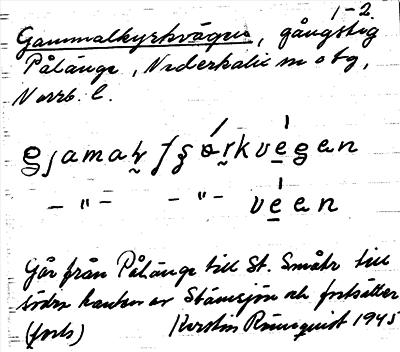 1-2.
Gammalkyrkvägen, gångstig
Pålänge, Nederkalix sn o tg,
Norrb. l.
vegan
— " —   — " —   vean
Går från Pålänge till St. Småtr till
södra kanten av Stämsjön och fortsätter
(forts)   Kerstin Rönnquist 1945